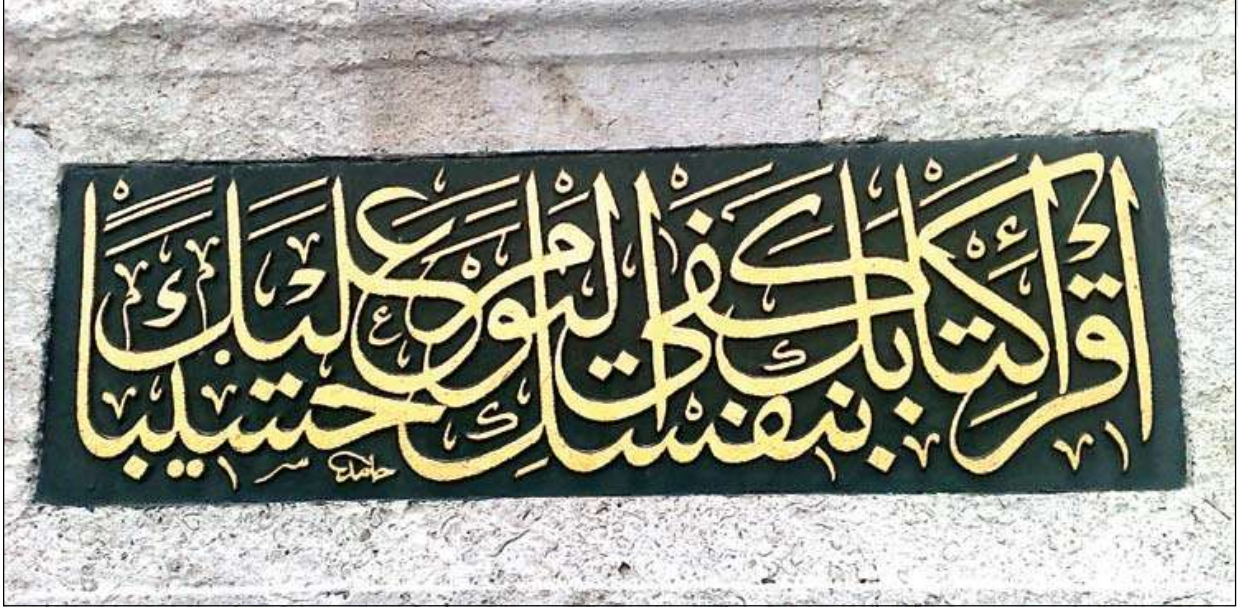 اقْرَأْ كِتَابَكَ كَفَى بِنَفْسِكَ الْيَوْمَ عَلَيْكَ حَسِيبًا
حامد